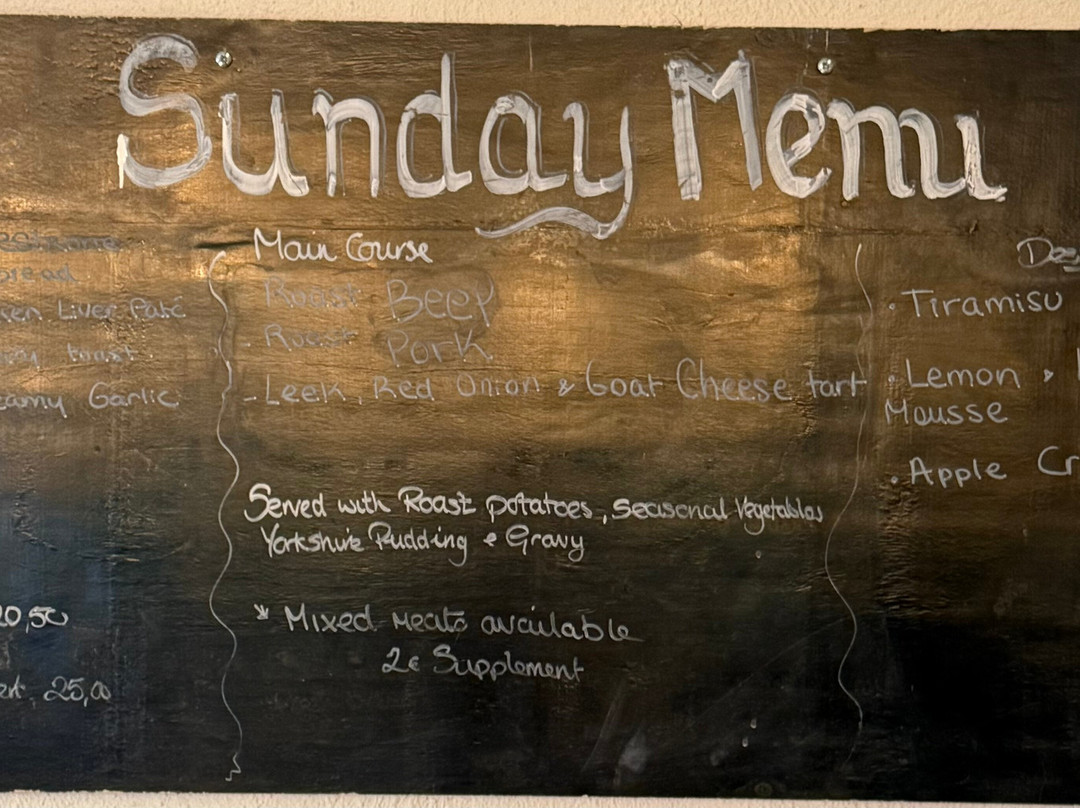 Sunday Menu
bread
Liver Paté
toast
Garlic
20,50
25,00
Main Course
Roast Beef
Roast Pork
- Leek, Red Onion & Goat Cheese tart
Served with Roast potatoes, seasonal Vegetables
Yorkshire Pudding & Gravy
* Mixed meats available
2€ Supplement
• Tiramisu
• Lemon &
Mousse
• Apple Cr